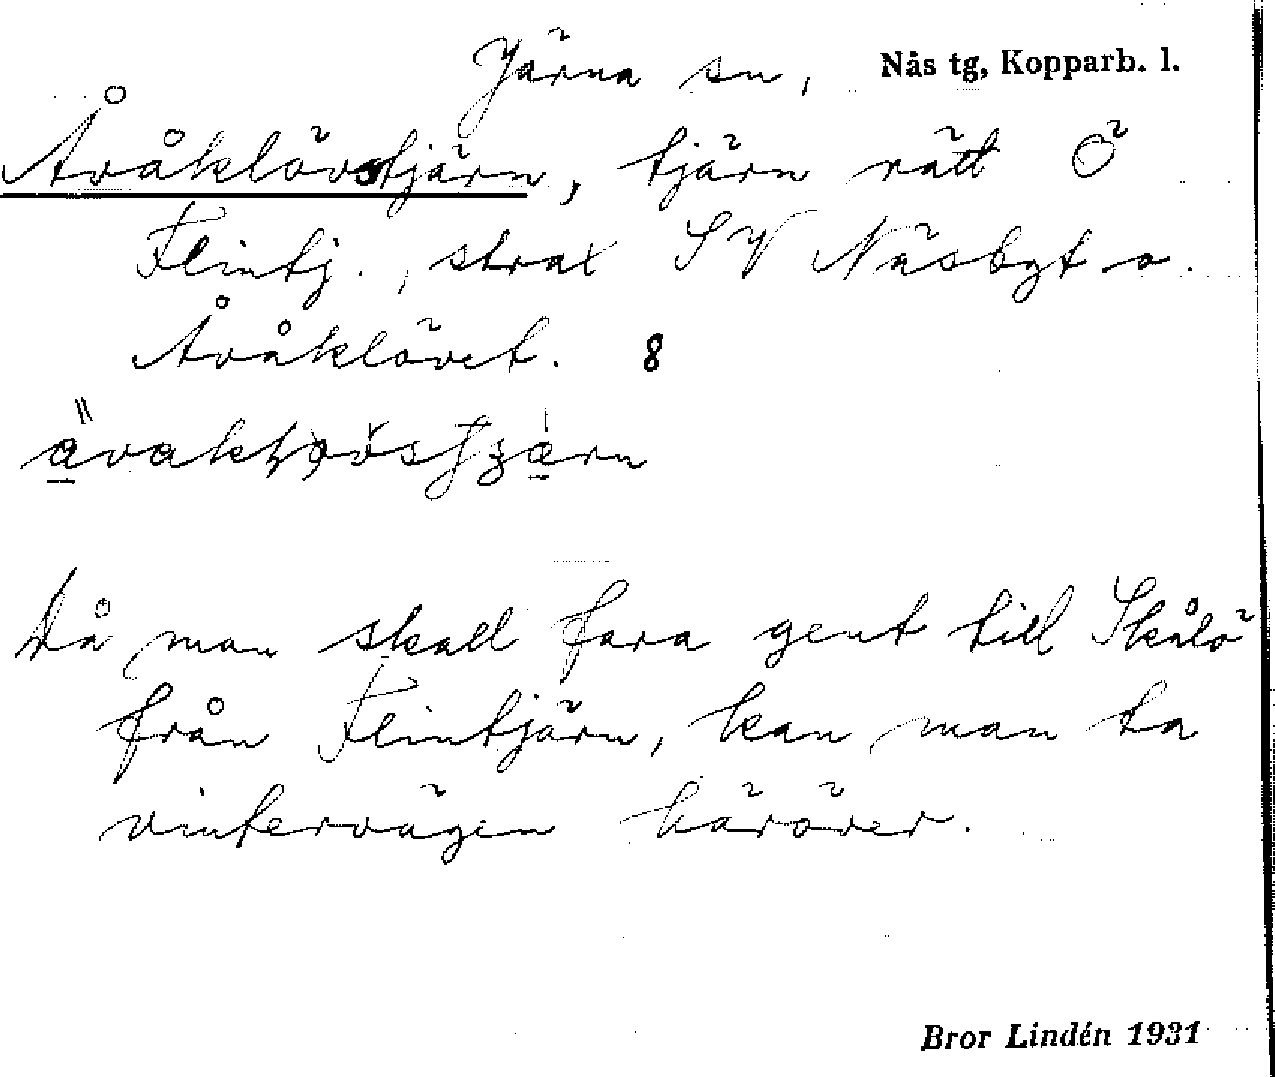 Järna sn, Nås tg, Kopparb. l.
Åvåklövstjärn, tjärn rätt Ö
Flintj., strax SV Näsbgt o.
Åvåklövet. 8
Då man skall fara gent till Skålö
från Flintjärn, kan man ta
vintervägen häröver.
Bror Lindén 1931